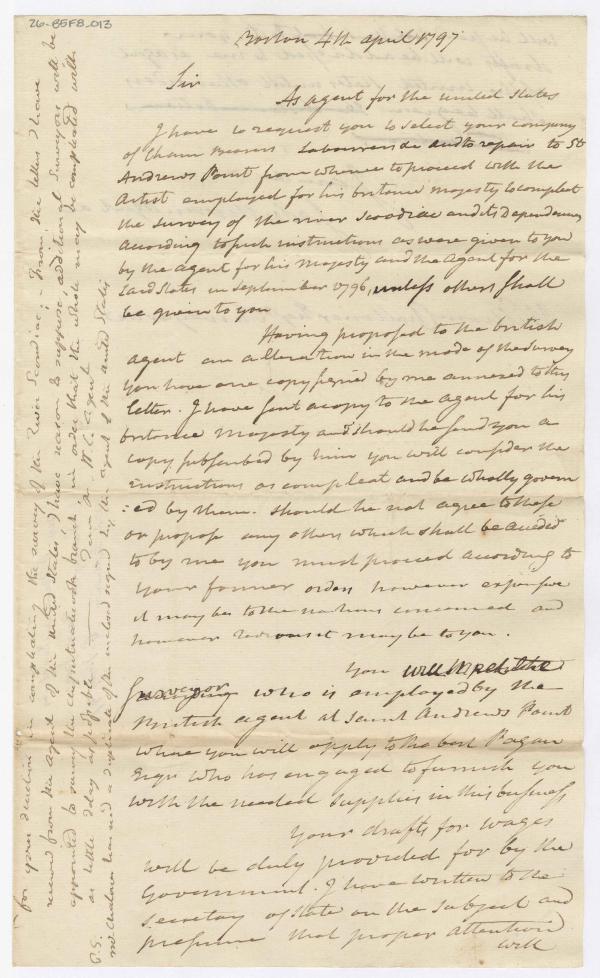 26-85F8_013
Boston 4th april 1797
Sir
As agent for the united States
I have to request you to select your company
of Chain Bearers Labourers &c and to repair to St
Andrews Point from whence to proceed with the
Artist employed for his britanic majesty to compleat
the survey of the river Scoodiac and its Dependencies
acording to such instructions as were given to you
by the agent for his Majesty and the Agent for the
said States in September 1796, unless others shall
be given to you
Having proposed to the british
agent an alteration in the mode of the survey
you have one copy signed by me annexed to this
letter. I have sent a copy to the agent for his
britanic Majesty and should he send you a
copy subscribed by him you will consider the
instructions as compleat and be wholly govern
:ed by them. should he not agree to these
or propose any others which shall be acceded
to by me you must proceed according to
your former orders however expensive
it may be to the nations concerned and
however tedious it may be to you.
you will the
Surveyor who is employed by the
British agent at Saint Andrews Point
where you will apply to Robert Pagan
Esqr who has engaged to furnish you
with the needed supplies in this business
Your drafts for wages
will be duly provided for by the
Government. I have written to the
secretary of state on the subject and
presume that proper attention
will
for your direction in compleating the survey of the River Scoudiac; - From the letters I have
received from the Agent of the United States I have reason to suppose, additional Surveyors will be
appointed to survey the Cheputnatecook branch in order that the whole may be compleated with
as little delay as possible
I am &c W C agent
P.S.
mr Anderson has had a duplicate of the inclosed signed by the agent of the united States